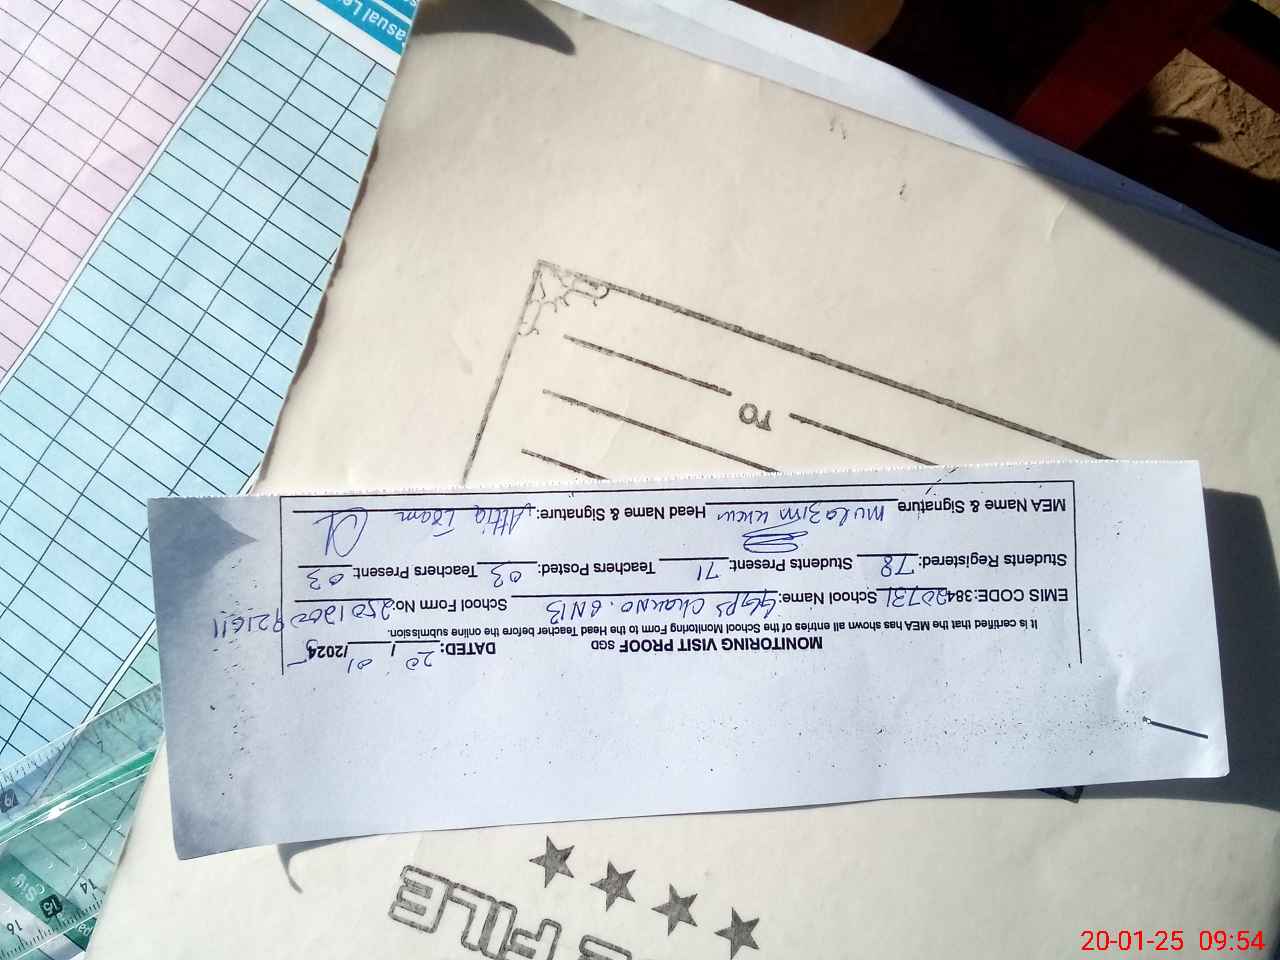 MONITORING VISIT PROOF SGD DATED: 20/01/2025
It is certified that the MEA has shown all entries of the School Monitoring Form to the Head Teacher before the online submission.
EMIS CODE:38420731 School Name: GGPS Chak No. 6NB School Form No:
Students Registered: 78 Students Present: 71 Teachers Posted: 03 Teachers Present: 03
MEA Name & Signature Head Name & Signature: Attia
TO
FILE
asual Le
20-01-25 09:54